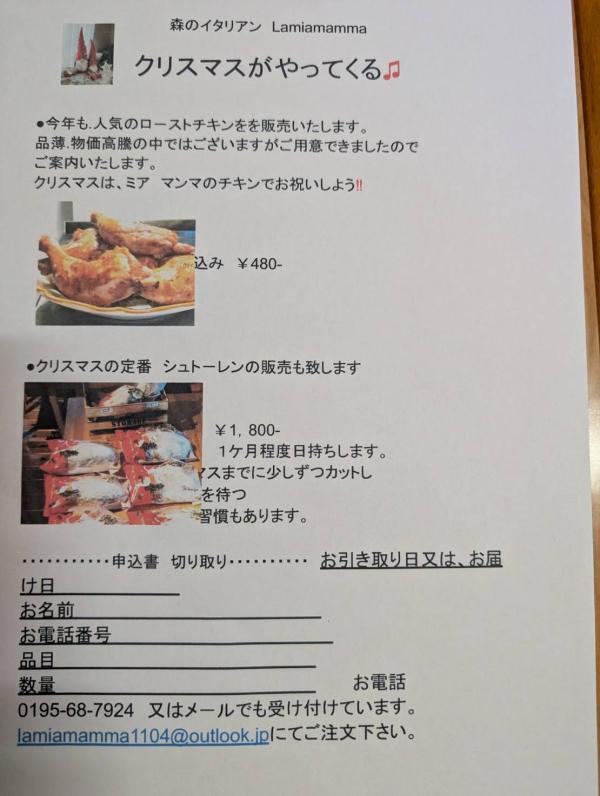 森のイタリアン Lamiamamma
クリスマスがやってくる♫
●今年も.人気のローストチキンをを販売いたします。
品薄.物価高騰の中ではございますがご用意できましたので
ご案内いたします。
クリスマスは、ミア マンマのチキンでお祝いしよう!!
込み ￥480-
●クリスマスの定番 シュトーレンの販売も致します
￥1，800-
1ケ月程度日持ちします。
マスまでに少しずつカットし
を待つ
習慣もあります。
･･･････････申込書 切り取り･･････････ お引き取り日又は、お届
け日
お名前
お電話番号
品目
数量 お電話
0195-68-7924 又はメールでも受け付けています。
lamiamamma1104@outlook.jpにてご注文下さい。